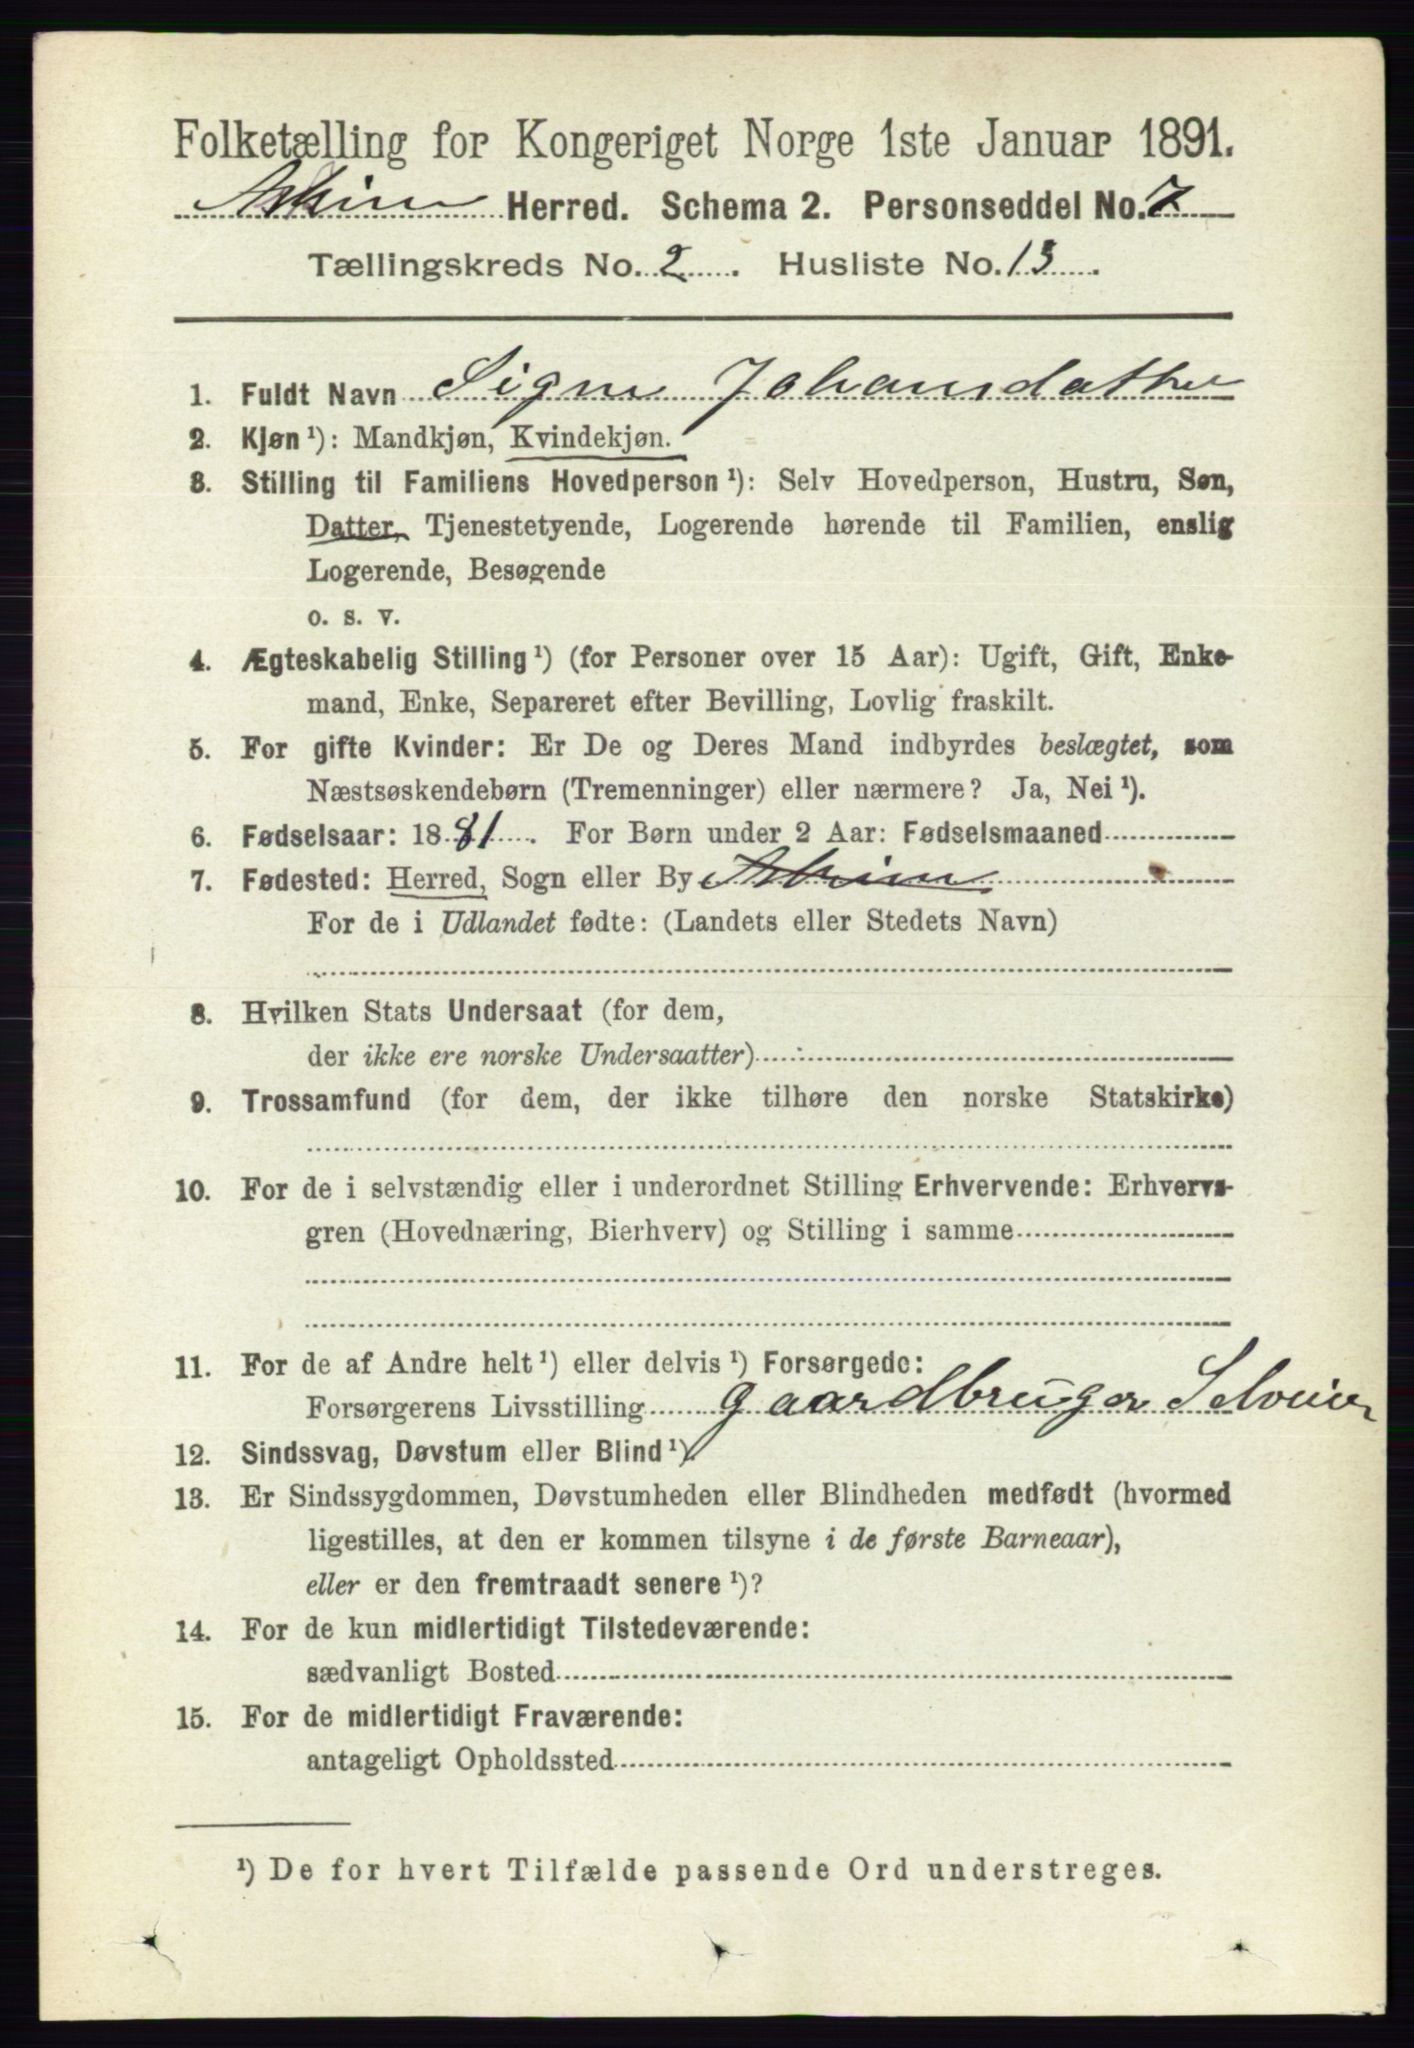 Folketælling for Kongeriget Norge 1ste Januar 1891.
Askim Herred. Schema 2. Personseddel No. 7
Tællingskreds No. 2. Husliste No. 13.
1. Fuldt Navn Signe Johansdatter
2. Kjøn ¹): Mandkjøn, Kvindekjøn.
3. Stilling til Familiens Hovedperson ¹): Selv Hovedperson, Hustru, Søn,
Datter, Tjenestetyende, Logerende hørende til Familien, enslig
Logerende, Besøgende
o. s. v.
4. Ægteskabelig Stilling ¹) (for Personer over 15 Aar): Ugift, Gift, Enke-
mand, Enke, Separeret efter Bevilling, Lovlig fraskilt.
5. For gifte Kvinder: Er De og Deres Mand indbyrdes beslægtet, som
Næstsøskendebørn (Tremenninger) eller nærmere? Ja, Nei ¹).
6. Fødselsaar: 1881. For Børn under 2 Aar: Fødselsmaaned
7. Fødested: Herred, Sogn eller By Askim
For de i Udlandet fødte: (Landets eller Stedets Navn)
8. Hvilken Stats Undersaat (for dem,
der ikke ere norske Undersaatter)
9. Trossamfund (for dem, der ikke tilhøre den norske Statskirke)
10. For de i selvstændig eller i underordnet Stilling Erhvervende: Erhvervs-
gren (Hovednæring, Bierhverv) og Stilling i samme
11. For de af Andre helt ¹) eller delvis ¹) Forsørgede:
Forsørgerens Livsstilling Gaardbruger Selveier
12. Sindssvag, Døvstum eller Blind ¹).
13. Er Sindssygdommen, Døvstumheden eller Blindheden medfødt (hvormed
ligestilles, at den er kommen tilsyne i de første Barneaar),
eller er den fremtraadt senere ¹)?
14. For de kun midlertidigt Tilstedeværende:
sædvanligt Bosted
15. For de midlertidigt Fraværende:
antageligt Opholdssted
¹) De for hvert Tilfælde passende Ord understreges.